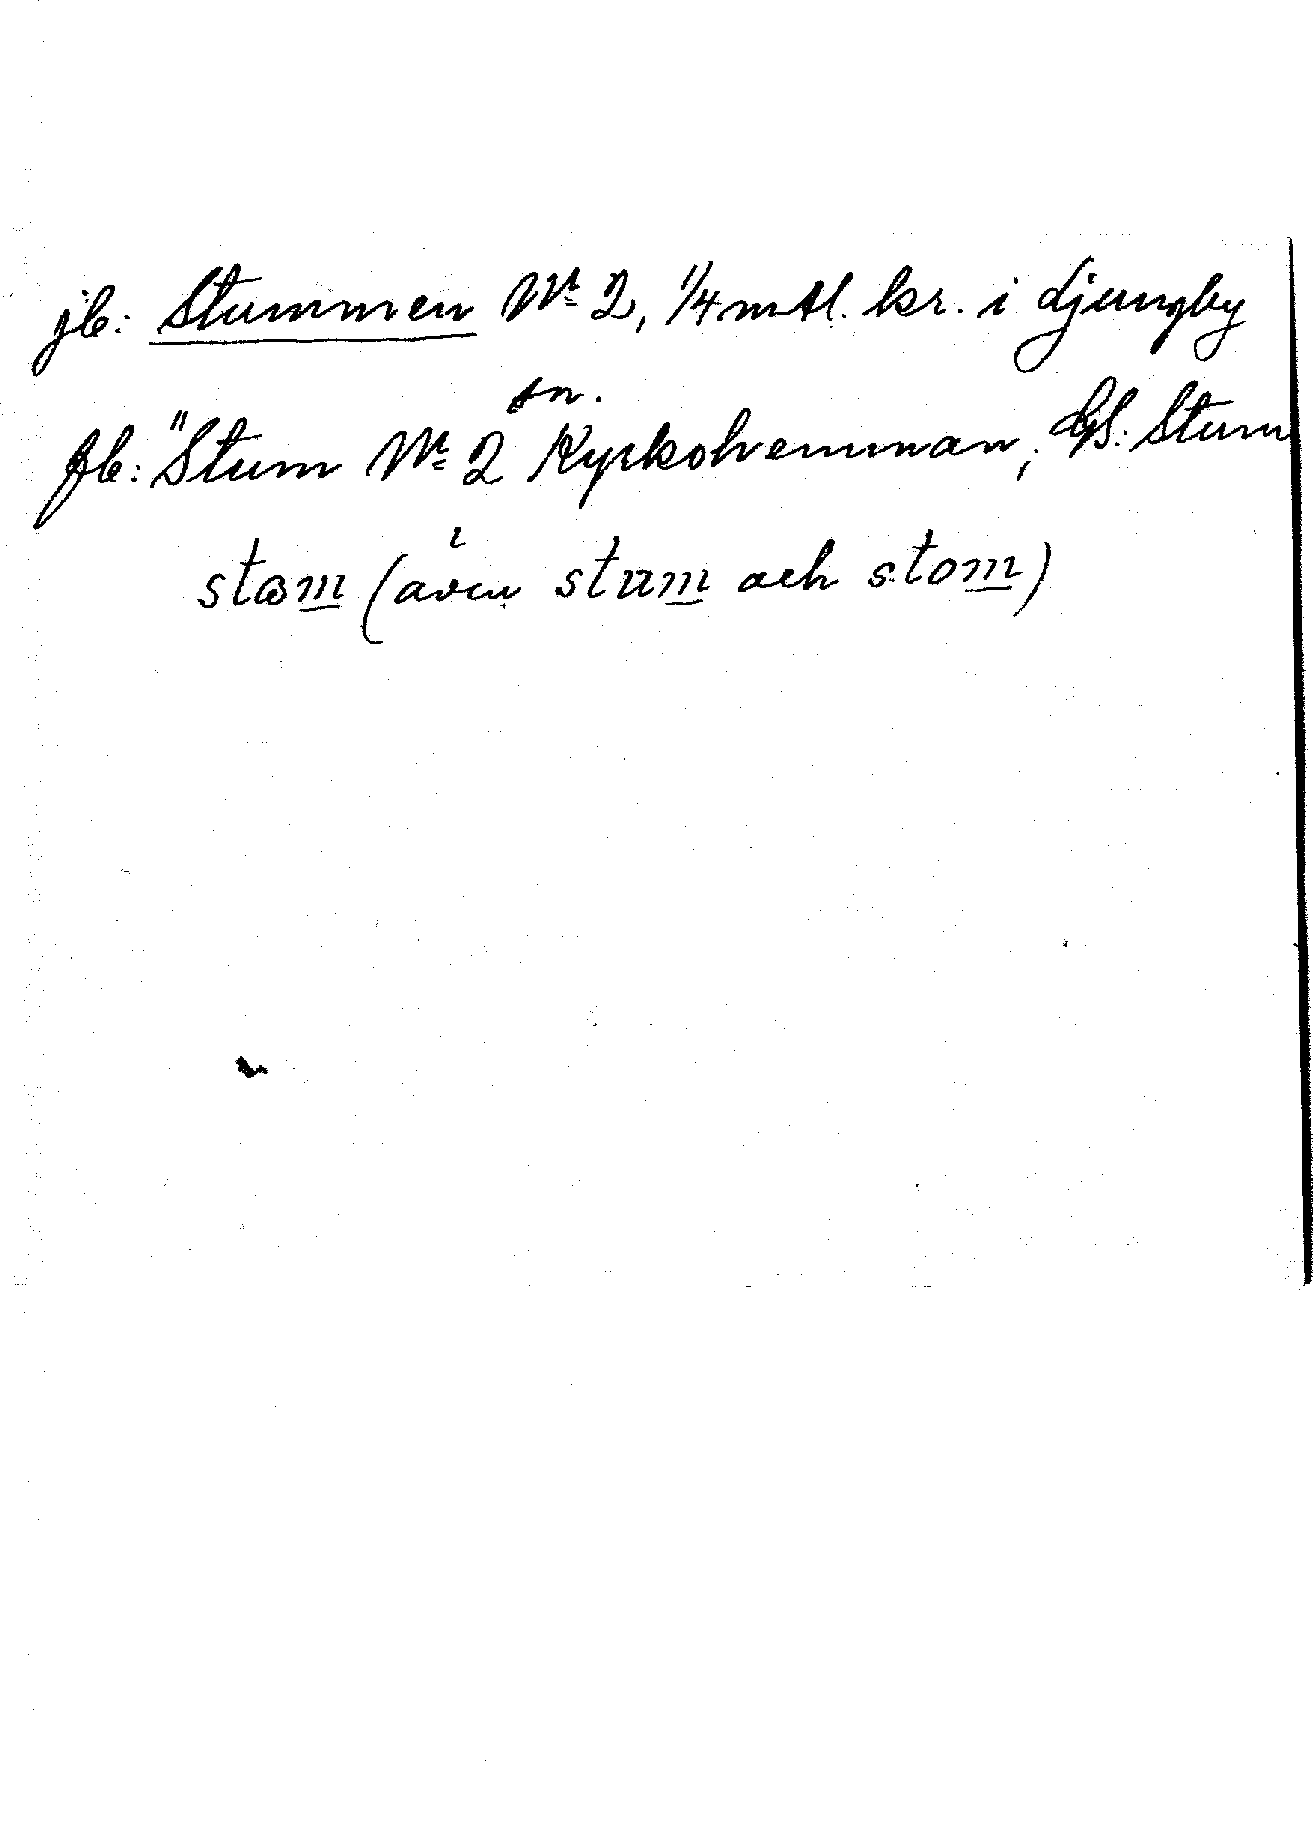 jb: Stummen Nr 2, 1/4 mtl. kr. i Ljungby
sn.
fb: "Stum Nr 2 Kyrkohemman; GS: Stum
stɷm (även stum och stom)